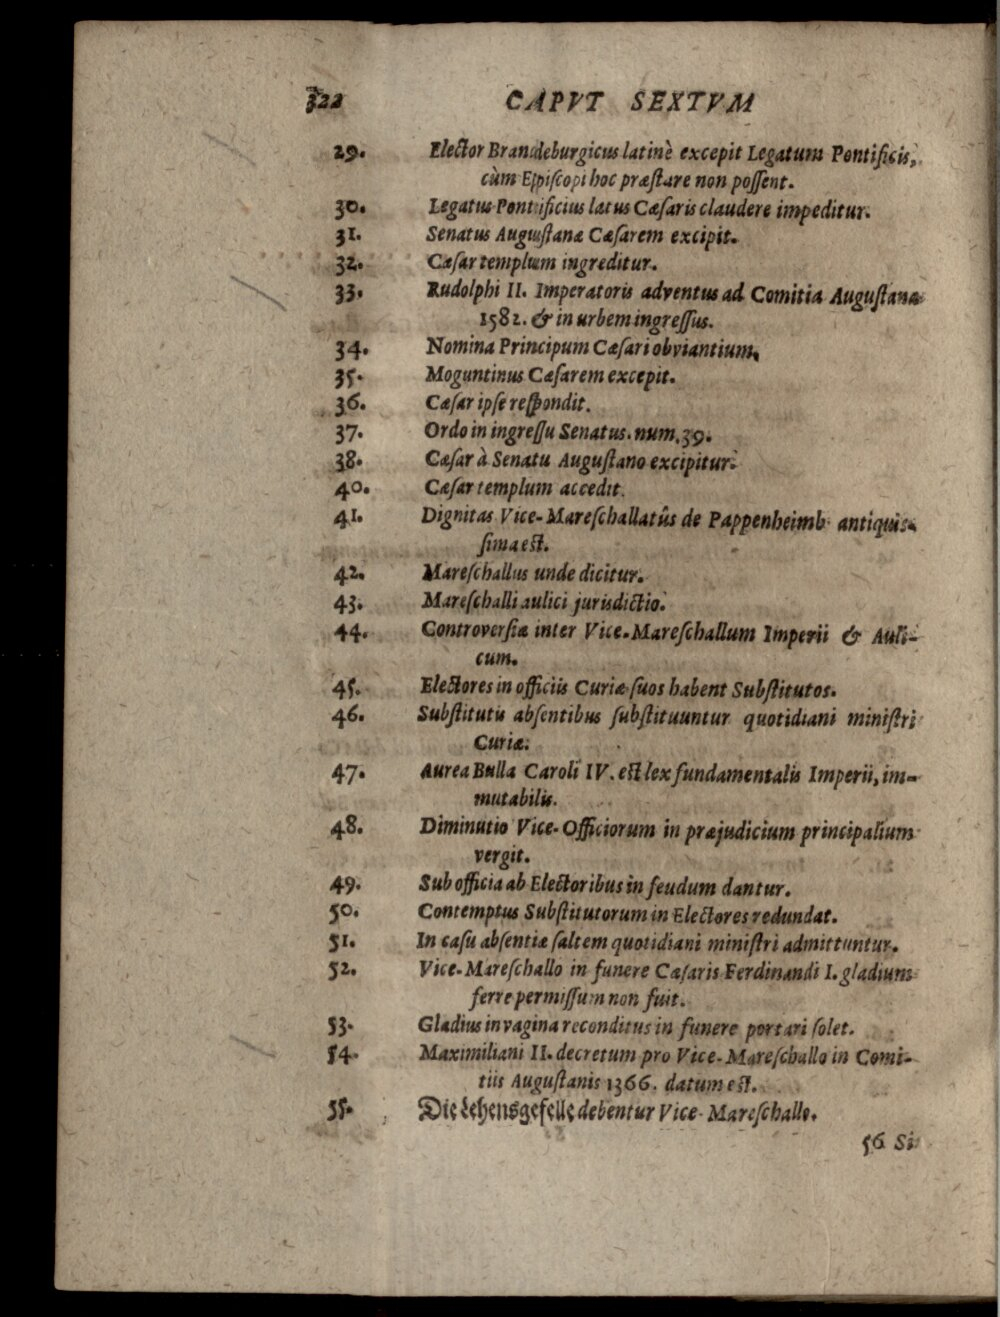 322 CAPVT SEXTVM
29. Elector Brandeburgicus latinè excepit Legatum Pontificis,
cùm Episcopi hoc præstare non possent.
30. Legatus Pontificius latus Cæsaris claudere impeditur.
31. Senatus Augustanæ Cæsarem excipit.
32. Cæsar templum ingreditur.
33. Rudolphi II. Imperatoris adventus ad Comitia Augustana
1582. & in urbem ingressus.
34. Nomina Principum Cæsari obviantium.
35. Moguntinus Cæsarem excepit.
36. Cæsar ipse respondit.
37. Ordo in ingressu Senatus. num. 39.
38. Cæsar à Senatu Augustano excipitur.
40. Cæsar templum accedit.
41. Dignitas Vice-Mareschallatûs de Pappenheimb antiquis-
sima est.
42. Mareschallus unde dicitur.
43. Mareschalli aulici jurisdictio.
44. Controversiæ inter Vice-Mareschallum Imperii & Auli-
cum.
45. Electores in officiis Curiæ suos habent Substitutos.
46. Substitutis absentibus substituuntur quotidiani ministri
Curiæ.
47. Aurea Bulla Caroli IV. est lex fundamentalis Imperii, im-
mutabilis.
48. Diminutio Vice-Officiorum in præjudicium principalium
vergit.
49. Sub officia ab Electoribus in feudum dantur.
50. Contemptus Substitutorum in Electores redundat.
51. In casu absentiæ saltem quotidiani ministri admittuntur.
52. Vice-Mareschallo in funere Cæsaris Ferdinandi I. gladium
ferre permissum non fuit.
53. Gladius in vagina reconditus in funere portari solet.
54. Maximiliani II. decretum pro Vice-Mareschallo in Comi-
tiis Augustanis 1366. datum est.
55. Die Lehensgefelle debentur Vice-Mareschallo.
56 Si